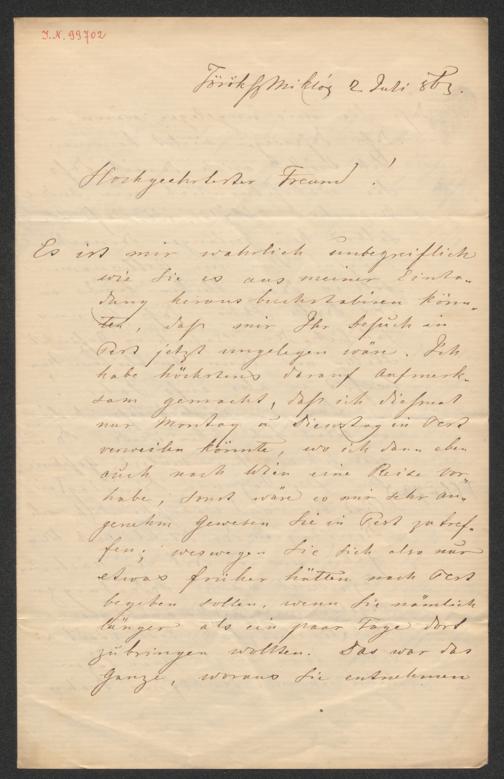 I.N. 99702
Török Sz Miklós 2 Juli 863.
Hochgeehrtester Freund!
Es ist mir wahrlich unbegreiflich
wie Sie es aus meiner Einla-
dung heraus buchstabiren könn-
ten, daß mir Ihr Besuch in
Pest jetzt ungelegen wäre. Ich
habe höchstens darauf aufmerk-
sam gemacht, daß ich dießmal
nur Montag u Dienstag in Pest
verweilen könnte, wo ich dann eben
auch nach Wien eine Reise vor
habe, sonst wäre es mir sehr an-
genehm gewesen Sie in Pest zu tref-
fen; weswegen Sie sich also nur
etwas früher hätten nach Pest
begeben sollen, wenn Sie nämlich
länger als ein paar Tage dort
zubringen wollten. Das war das
Ganze, woraus Sie entnehmen